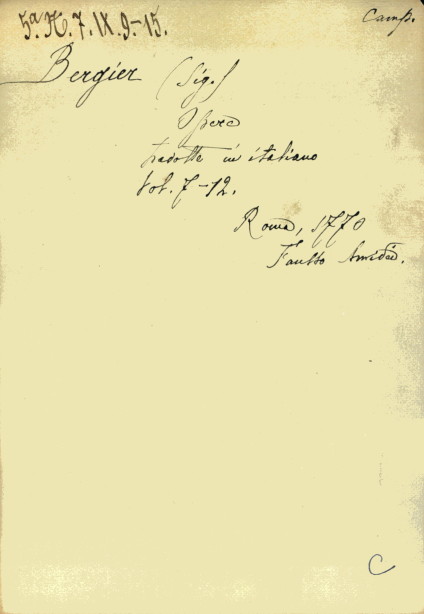 5ª.H.7.IX.9.-15.
Camp.
Bergier (Sig.)
Opere
tradotte in italiano
Vol. 7-12.
Roma, 1770
Fausto Amidei.
C